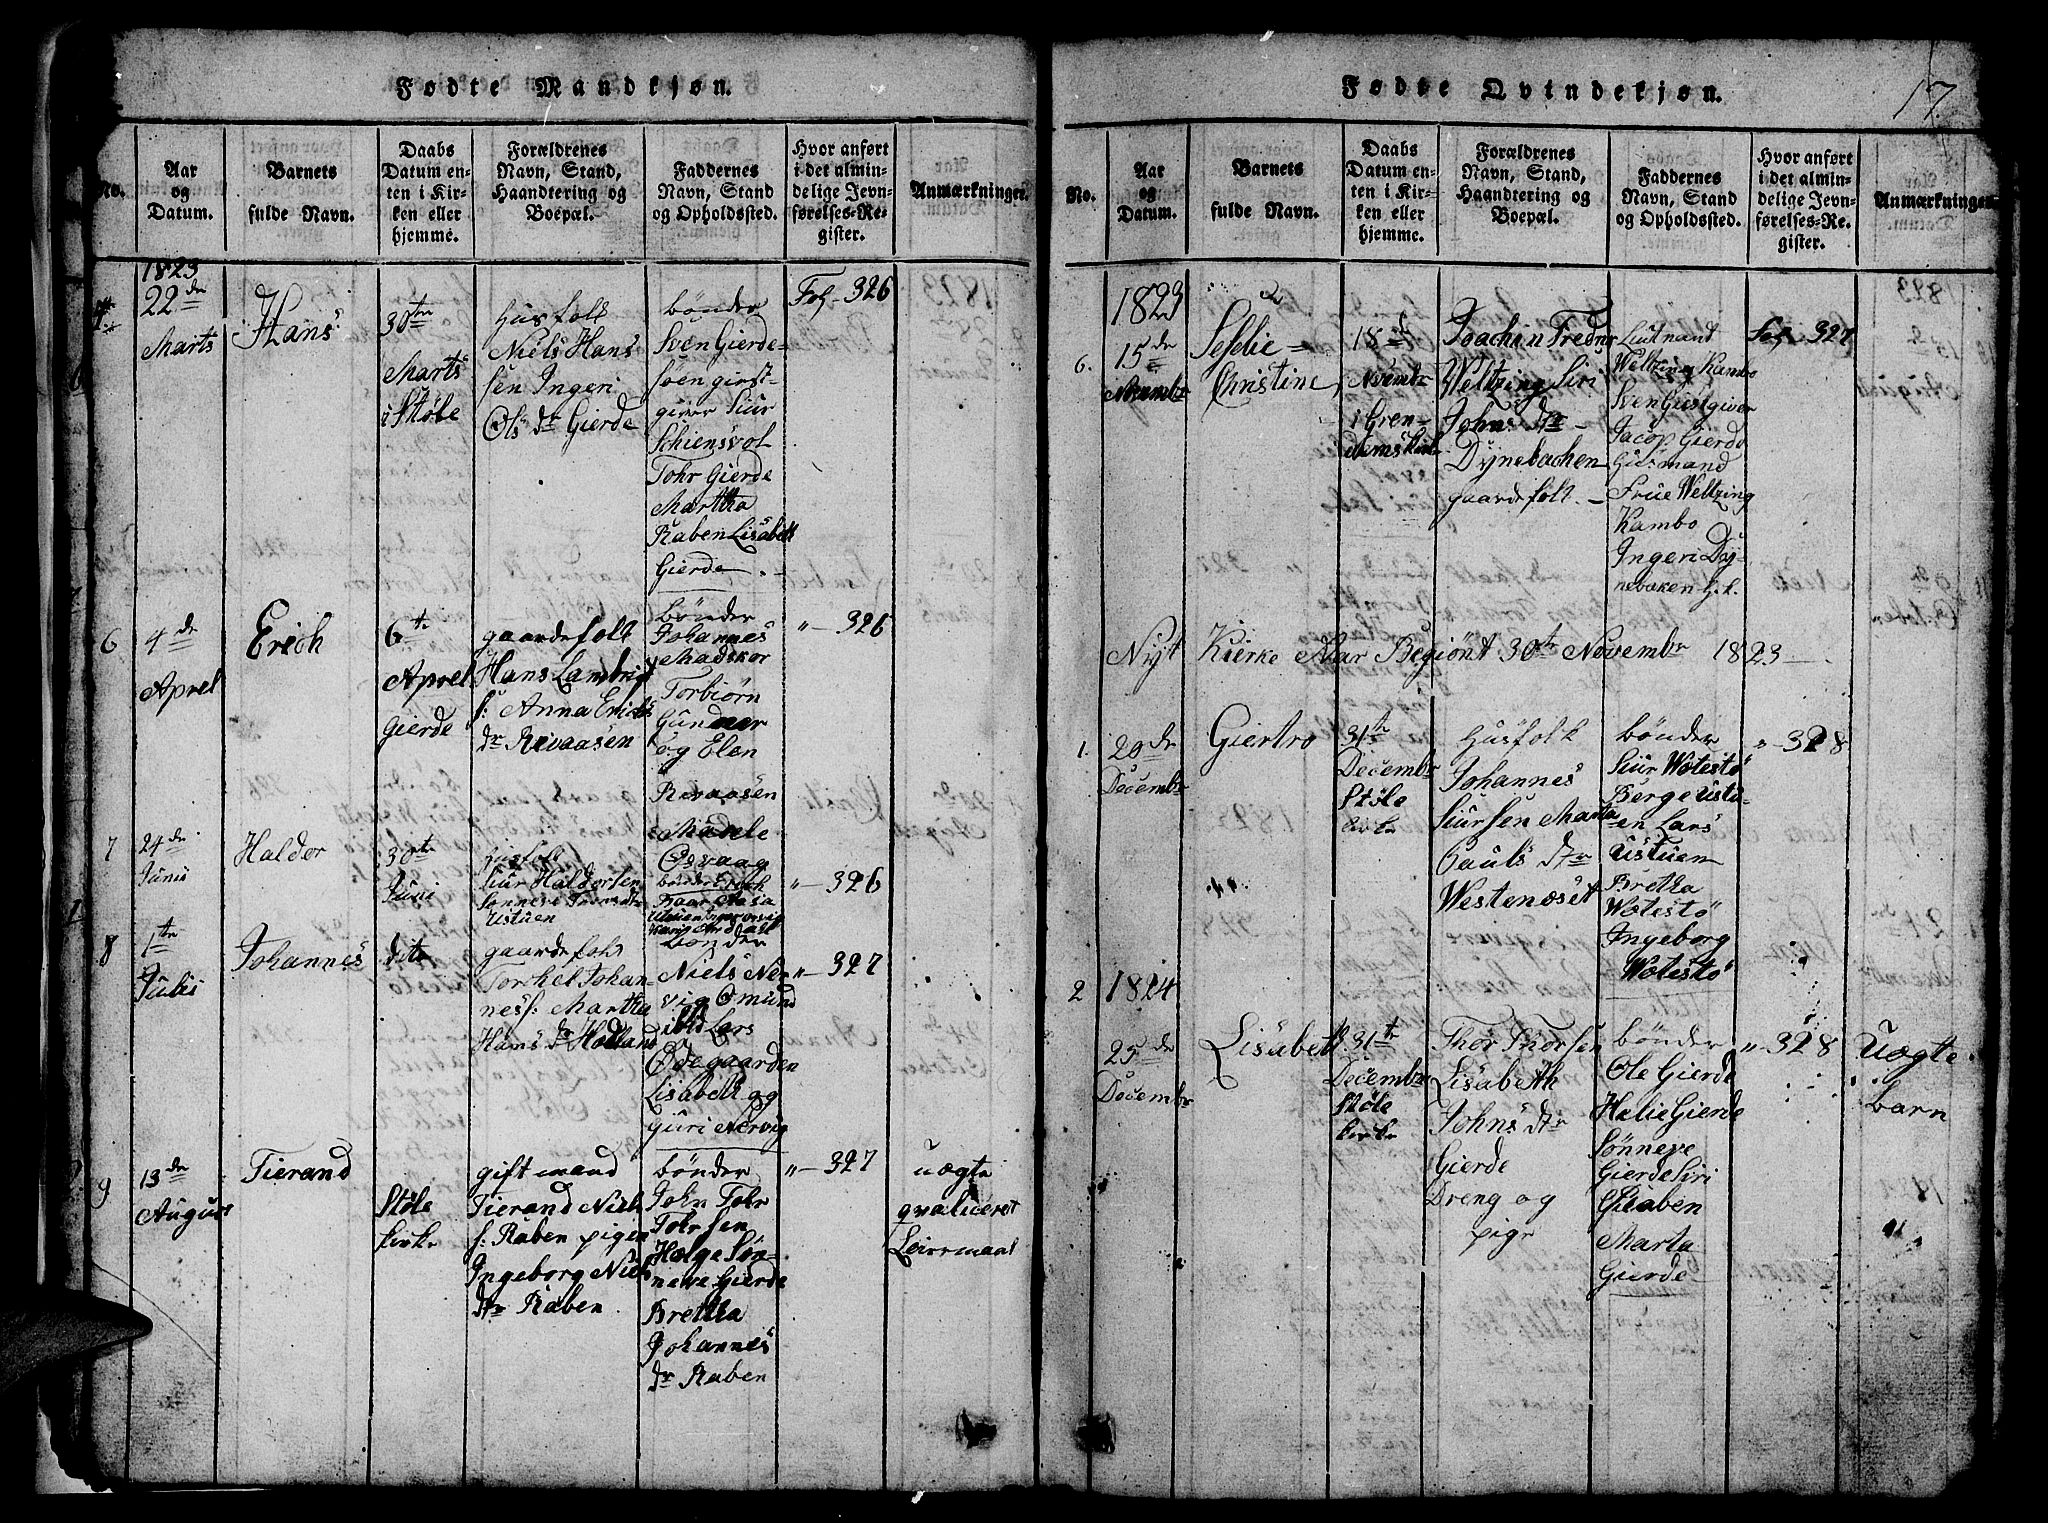 Fødte Mandkjøn.
No.
Aar
og
Datum.
Barnets
fulde Navn.
Daabs
Datum en-
ten i Kir-
ken eller
hjemme.
Forældrenes
Navn, Stand,
Haandtering og
Boepæl.
Faddernes
Navn, Stand
og Opholdssted.
Hvor anført
i det almin-
delige Jevn-
førelses-Re-
gister.
Anmærkninger.
1823
22de
Marts
Hans
30te
Marts
i Støle
Husfolk
Niels Hans
sen Ingeri
Ols dr Gierde
bønder
Sven Gierde
Siur
Schiensvol
Tohr Gierde
Martha
Raben Lisabeth
Gierde
Fol 326
6
4de
Aprel
Erich
6te
Aprel
Gierde
gaardefolk
Hans Lambrigt
s: Anna Erichs
dr Revaasen
bønder
Johannes
Madskor
Torbiørn
Gundmar
og Elen
Revaasen
" 326
7
24de
Junii
Haldor
30te
Juni
Husfolk
Siur Haldorsen
Ustuen
Madele
Osvaag
bønder
" 326
8
1te
Julis
Johannes
dito
gaardefolk
Torkel Johan
ness: Martha
Hans dr Hodland
bønder
Niels Ner
vig Omund
ibid Lars
Ødegaarden
Lisabeth og
Guri Nervig
" 327
9
13de
August
Tierand
Støle
kirke
gift mand
Tierand Niels
s: Raben pigen
Ingeborg Niels
dr Raben
bønder
John Tohr
Tohrsen
Helge Søn-
neve Gierde
Bretha
Johannes
dr Raben
" 327
uægte
qvaliceret
Leiermaal
Fødte Qvindekjøn.
17.
No.
Aar
og
Datum.
Barnets
fulde Navn.
Daabs
Datum en-
ten i Kir-
ken eller
hjemme.
Forældrenes
Navn, Stand,
Haandtering og
Boepæl.
Faddernes
Navn, Stand
og Opholdssted.
Hvor anført
i det almin-
delige Jevn-
førelses-Re-
gister.
Anmærkninger.
6.
1823
15de
Novembr
Sesselie
Christine
18d
Novembr
i Gren-
Joachin Fredr
Weltzing Siri
Johns dr
Dynebachen
gaardefolk
Liutnand
Weltzing Kambo
Sven Giestgiver
Jacop Gierde
Husmand
Frue Weltzing
Kambo
Ingeri Dy-
nebaken g.k.
Fol 327
Nyt Kierke Aar Begiønt 30te Novembr 1823
1.
20de
Decembr
Giertro
31te
Decembr
Støle
kirke
Husfolk
Johannes
Siursen Marta
Pauls dtr
Westenæset
bønder
Siur Wetestø
Berge Ustu-
en Lars
Ustuen
Bretha
Wetestø
Ingeborg
Wetestø
" 328
2
1824
25de
Decembr
Lisabeth
31te
Decembr
Støle
kirke
Thor Thorsen
Lisabeth
Johns dtr
Gierde
Dreng og
pige
bønder
Ole Gierde
Halie Gierde
Sønneve
Gierde Siri
Marta
Gierde
" 328
Uægte
barn